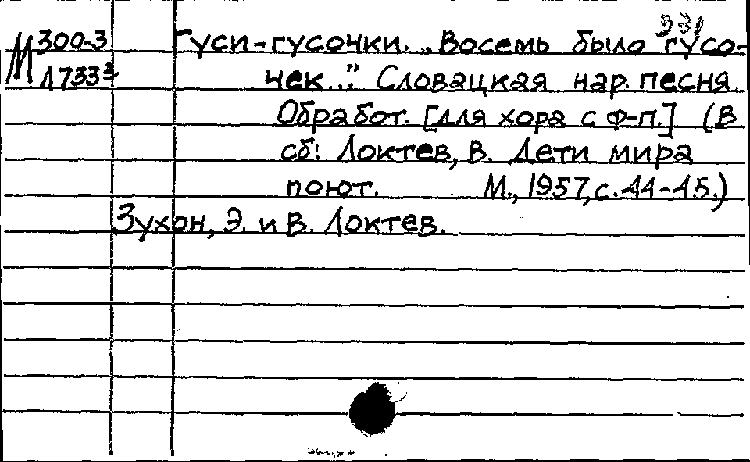 М 300-3
Л733
Гуси-гусочки. „Восемь было гусо-
чек..." Словацкая нар. песня.
Обработ. [для хора с ф-п.] (В
сб: Локтев, В. Дети мира
поют. М., 1957, с. 44-45.)
Зухон, Э. и В. Локтев.